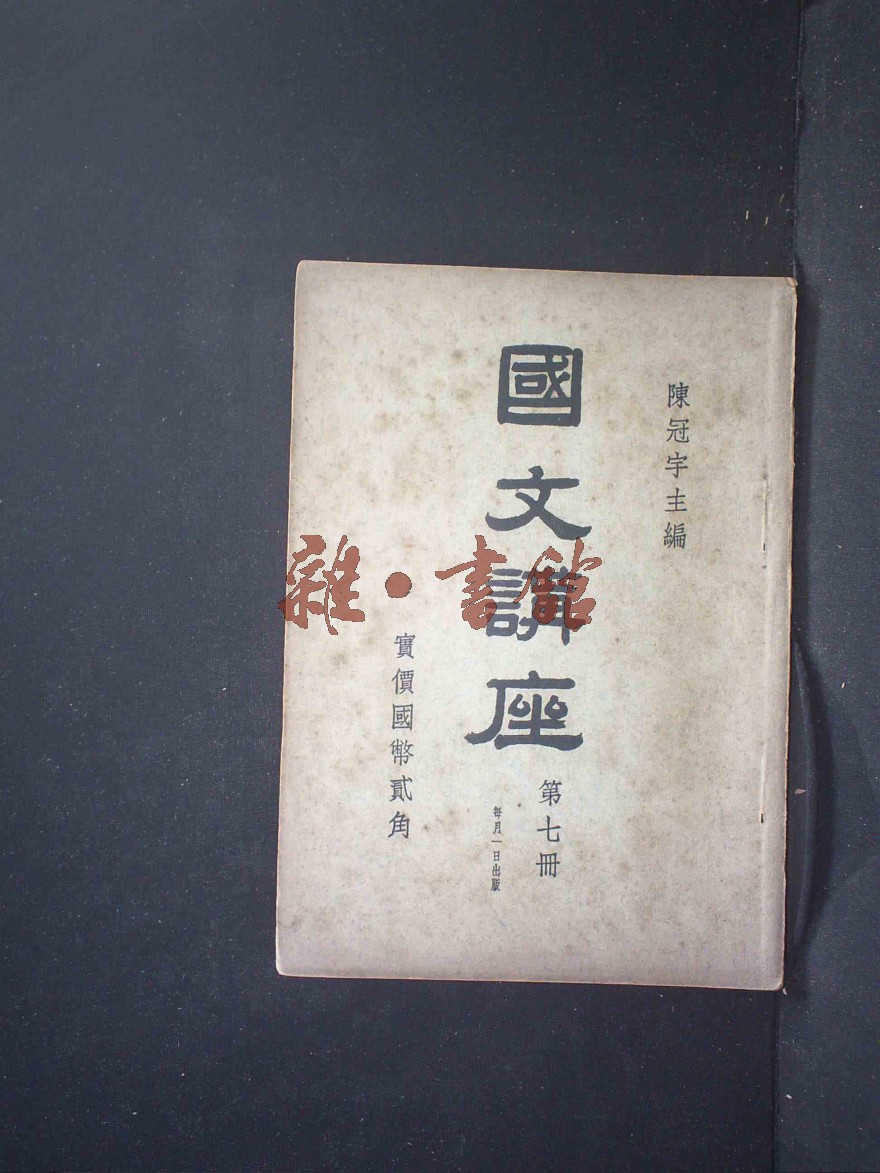 陳冠宇主編
國文講座
第七冊
每月一日出版
實價國幣貳角
雜·書館